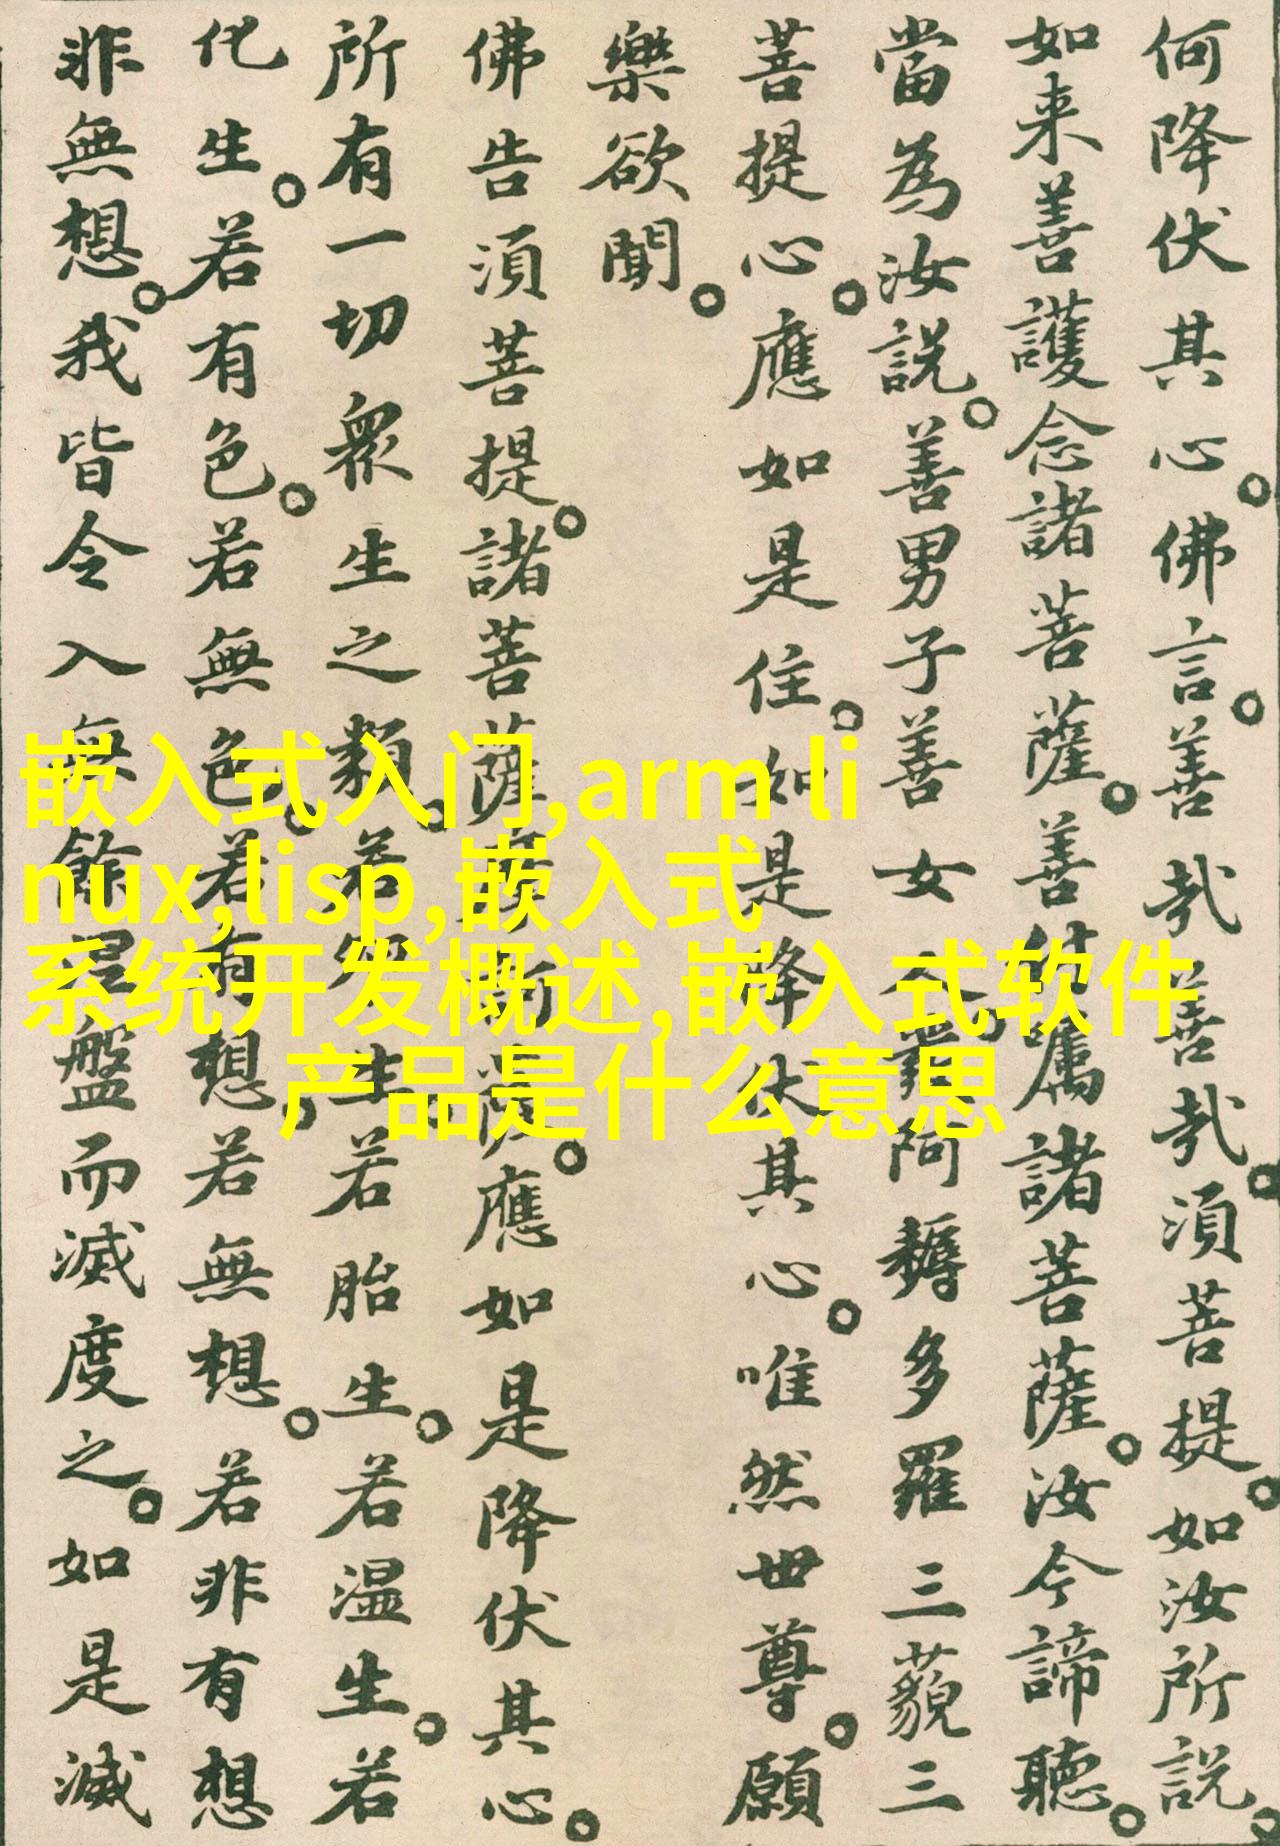 何降伏其心。佛言。善哉善哉。湏菩提。如汝所説。
如来善護念諸菩薩。善付囑諸菩薩。汝今諦聽。
當為汝説。善男子善女人。發阿耨多羅三藐三
菩提心。應如是住。如是降伏其心。唯然世尊。願
樂欲聞。
佛告湏菩提。諸菩薩摩訶薩。應如是降伏其心。
所有一切衆生之類。若卵生。若胎生。若温生。若
化生。若有色。若無色。若有想。若無想。若非有想
非無想。我皆令入無餘涅盤而滅度之。如是滅
嵌入式入门,arm li
nux,lisp,嵌入式
系统开发概述,嵌入式软件
产品是什么意思